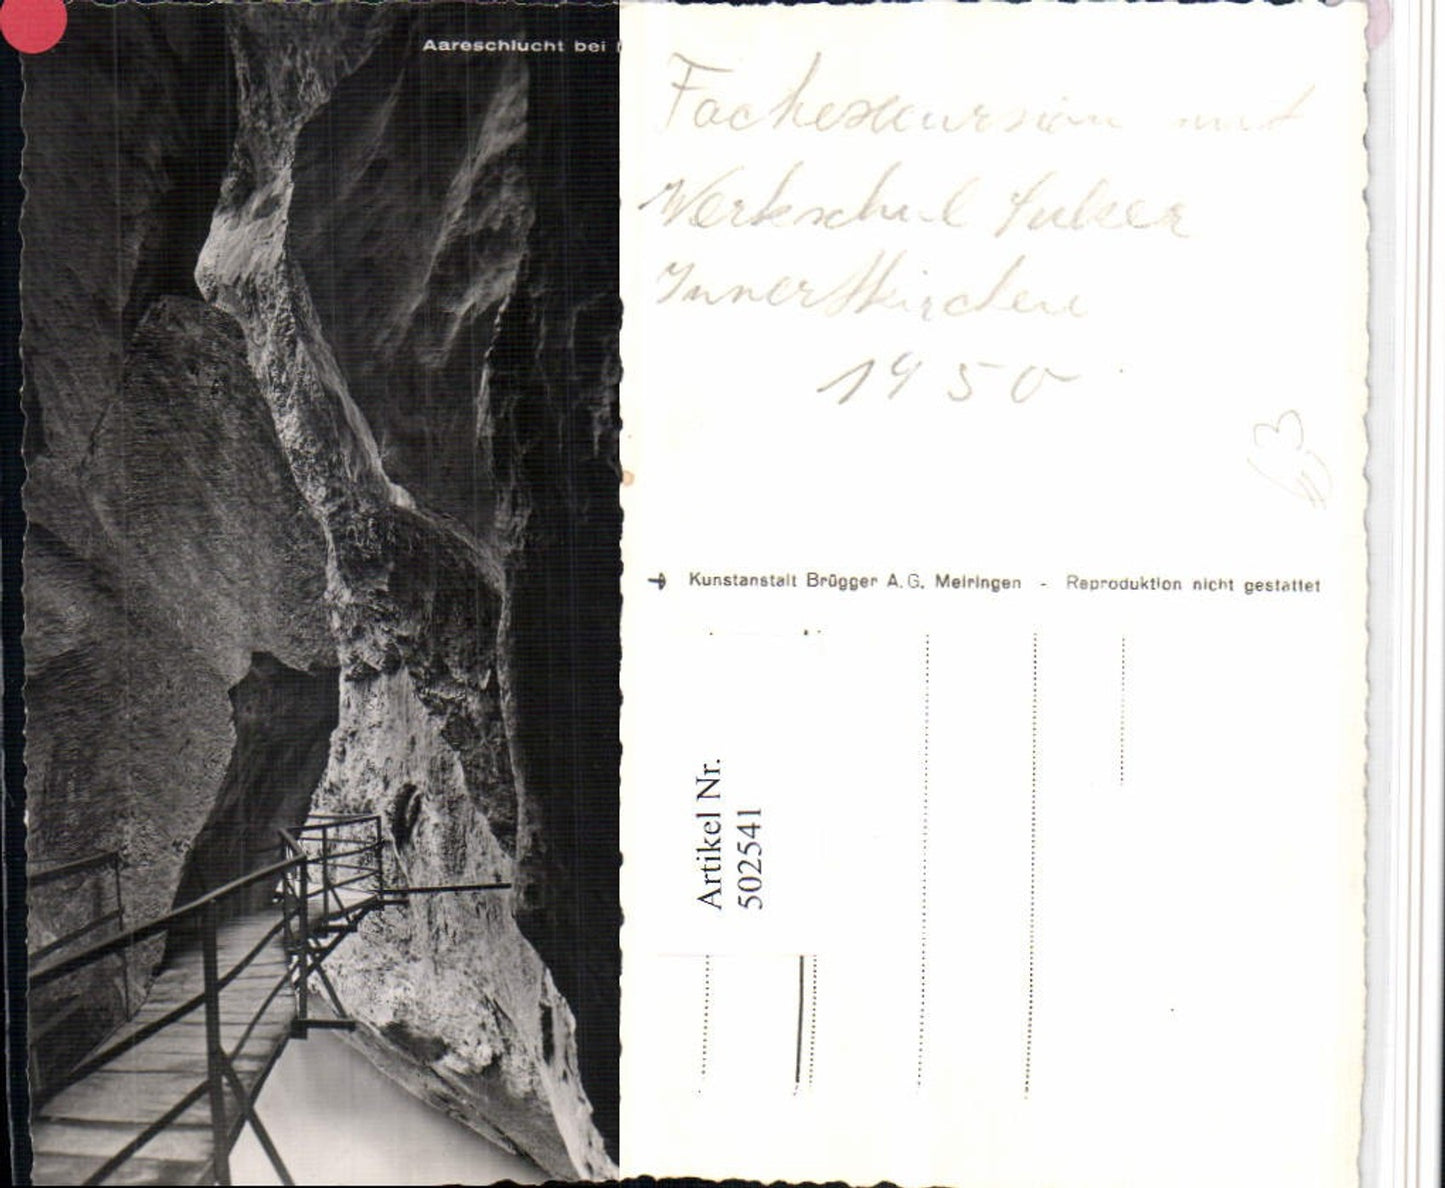 Aareschlucht bei
Fachexcursion mit
Werkschul Sulzer
Innertkirchen
1950
Kunstanstalt Brügger A.G. Meiringen - Reproduktion nicht gestattet
Artikel Nr.
502541